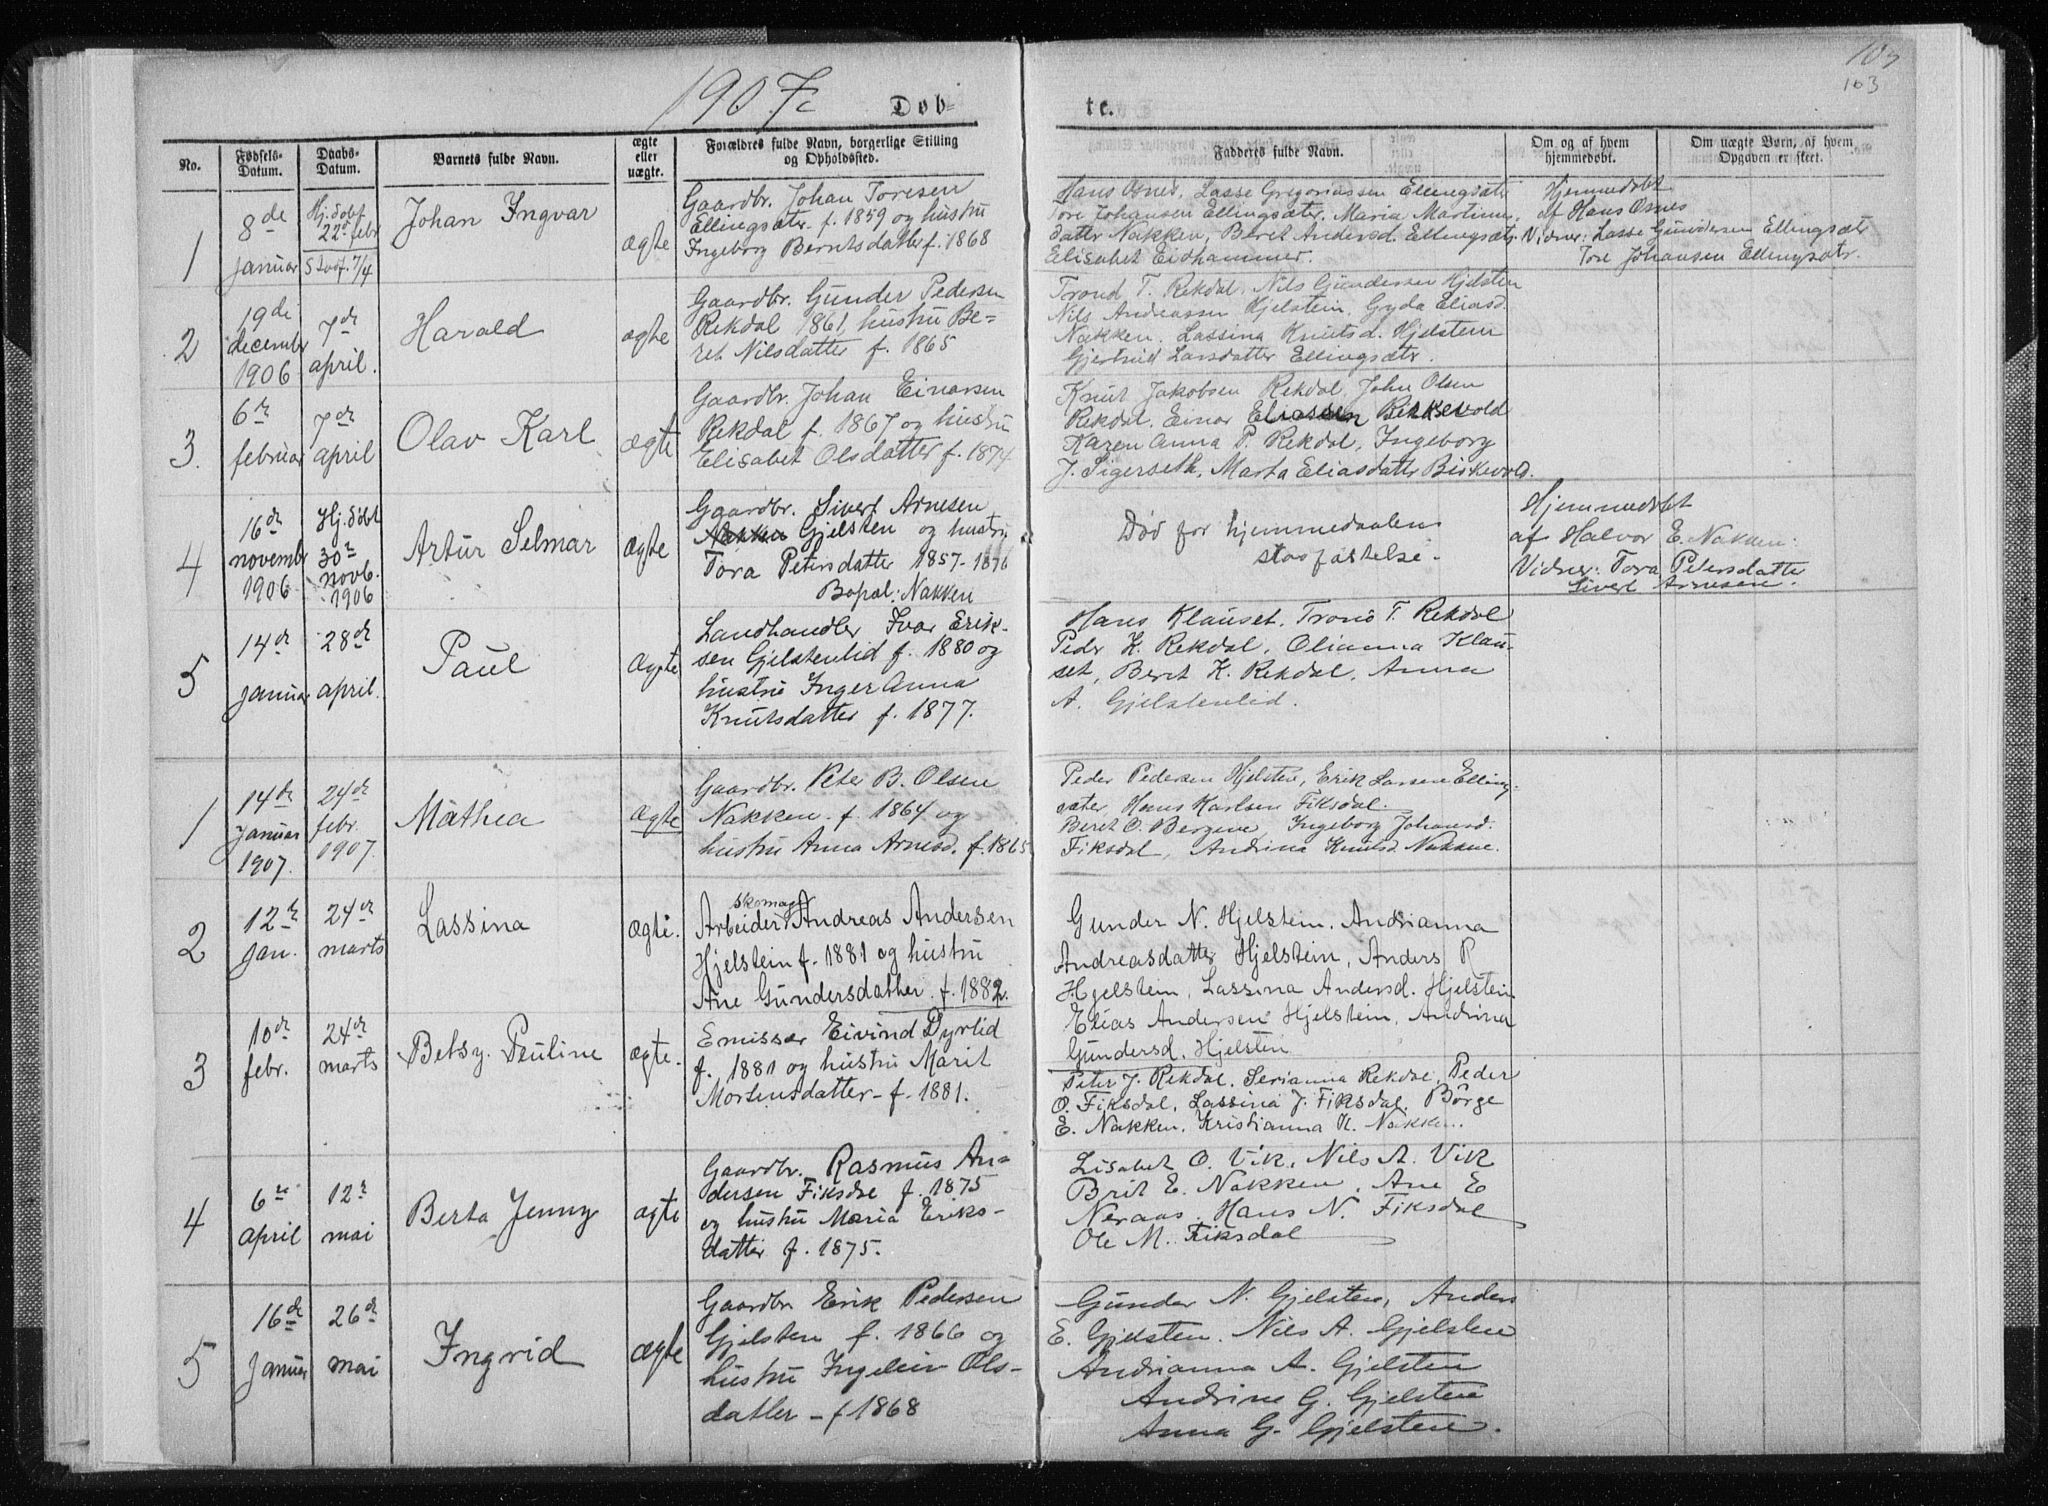 1907
Døb-
te.
103
103
No.
Fødsels-
Datum.
Daabs-
Datum.
Barnets fulde Navn.
ægte
eller
uægte.
Forældres fulde Navn, borgerlige Stilling
og Opholdssted.
Fadderes fulde Navn.
Om og af hvem
hjemmedøbt.
Om uægte Børn, af hvem
Opgaven er skeet.
1
8de
januar
Hj.døbt
22d febr
Stadf. 7/4
Johan Ingvar
ægte
Gaardbr. Johan Toresen
Ellingsæter f. 1859 og hustru
Ingeborg Berntsdatter f. 1868
Hans Osnes, Lasse Gregoriassen Ellingsætr
Tore Johansen Ellingsæter. Maria Martinus-
datter Nakken, Beret Andersd. Ellingsætr.
Elisabet Eidhammer.
Hjemmedøbt
af Hans Osnes
Vidner: Lasse Gundersen Ellingsæter
Tore Johansen Ellingsætr.
2
19de
decembr
1906
7de
april.
Harald
ægte
Gaardbr. Gunder Pedersen
Rekdal 1861, hustru Be-
ret Nilsdatter f. 1865
Trond T. Rekdal, Nils Gundersen Hjelsten
Nils Andreassen Hjelstein, Gyda Eliasd.
Nakken. Lassina Knutsd. Hjelstein
Gjertrud Larsdatter Ellingsætr.
3.
6te
februar
7de
april
Olav Karl
ægte
Gaardbr. Johan Einarsen
Rekdal f. 1867 og hustru
Elisabet Olsdatter f. 1874
Knut Jakobsen Rekdal, John Olsen
Rekdal. Einar Eliassen Birkevold
Karen Anna P. Rekdal, Ingeborg
J. Sigerseth, Marta Eliasdatter Birkevold.
4
16de
novembr
1906
Hj.døbt
30te
novb.
1906
Artur Selmar
ægte
Gaardbr. Sivert Arnesen
Nakken Gjelsten og hustru
Tora Petersdatter 1857-1876
Bopæl: Nakken
Død før hjemmedaabens
stadfæstelse.
Hjemmedøbt
af Halvor E. Nakken.
Vidner: Tora Petersdatter
Sivert Arnesen.
5
14de
januar
28de
april.
Paul
ægte
Landhandler Ivar Erik-
sen Gjelstenlid f. 1880 og
hustru Inger Anna
Knutsdatter f. 1877.
Hans Klauset. Trond T. Rekdal
Peder K. Rekdal, Olianna Klau-
set, Beret K. Rekdal, Anna
A. Gjelstenlid.
1
14de
januar
1907.
24de
febr.
1907.
Mathea
ægte
Gaardbr. Peter B. Olsen
Nakken. f. 1864 og
hustru Anna Arnesd. f. 1865
Peder Pedersen Hjelsten, Erik Larsen Elling-
sæter, Hans Karlsen Fiksdal.
Beret O. Bergene, Ingeborg Johansd.
Fiksdal, Andrina Knutsd. Nakken.
2
12te
jan.
24de
marts
Lassina
ægte.
skomager
Arbeider Andreas Andersen
Hjelstein f. 1881 og hustru
Ane Gundersdatter f. 1882.
Gunder N. Hjelstein, Andrianna
Andreasdatter Hjelstein, Anders R
Hjelstein, Lassina Andersd. Hjelstein
Elias Andersen Hjelstein, Andrina
Gundersd. Hjelsten
3
10de
febr.
24de
marts
Betsy Pauline
ægte.
Emissær Eivind Dyrlid
f. 1881 og hustru Marit
Mortensdatter f. 1881.
Peter J. Rekdal, Serianna Rekdal, Peder
O. Fiksdal, Lassina J. Fiksdal, Børge
E. Nakken, Kristianna K. Nakken.
4
6te
april
12te
mai
Berta Jenny
ægte
Gaardbr. Rasmus An-
dersen Fiksdal f. 1875
og hustru Maria Eriks-
datter f. 1875.
Lisabet O. Vik, Nils A. Vik
Brit E. Nakken, Ane E
Neraas. Hans N. Fiksdal
Ole M. Fiksdal
5
16de
januar
26de
mai
Ingrid
ægte
Gaardbr Erik Pedersen
Gjelsten f. 1866 og
hustru Ingeleiv Ols-
datter - f 1868
Gunder N. Gjelsten, Anders
E. Gjelsten. Nils A. Gjelsten
Andrianna A. Gjelsten
Andrine G. Gjelsten
Anna G. Gjelsten.